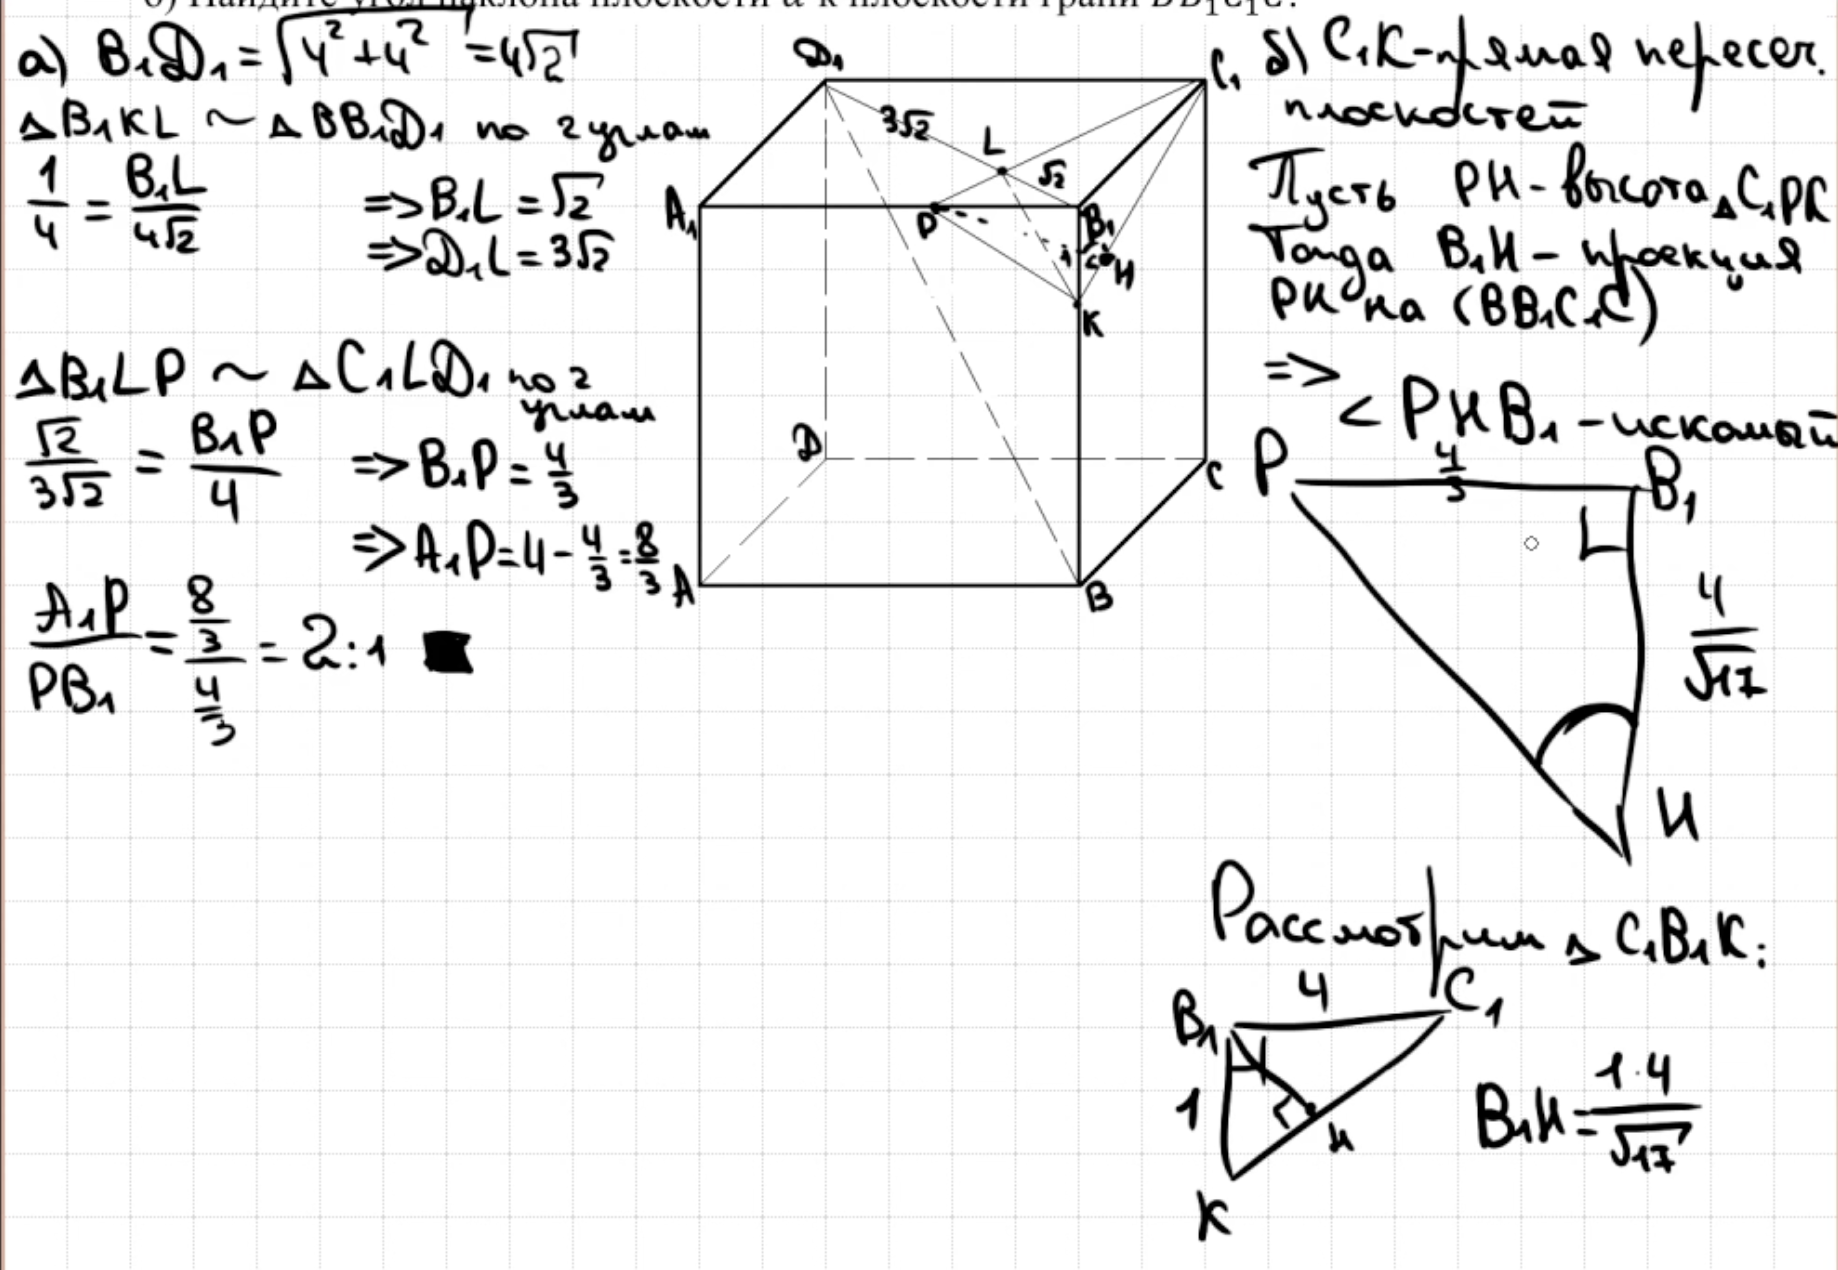 б) Найдите угол наклона плоскости α к плоскости грани BB₁C₁C.
а) B₁D₁ = √(4² + 4²) = 4√2
△B₁KL ~ △BB₁D₁ по 2 углам
1/4 = B₁L/4√2 => B₁L = √2
=> D₁L = 3√2
△B₁LP ~ △C₁LD₁ по 2
углам
√2/3√2 = B₁P/4 => B₁P = 4/3
=> A₁P = 4 - 4/3 = 8/3
A₁P/PB₁ = 8/3 / 4/3 = 2:1
D₁
C₁
3√2
L
√2
A₁
P
B₁
H
K
D
C
A
B
б) C₁K - прямая пересеч.
плоскостей
Пусть PH - высота △C₁PK
Тогда B₁H - проекция
PH на (BB₁C₁C)
=> < PHB₁ - искомый
P
4/3
B₁
4/√17
H
Рассмотрим △ C₁B₁K:
B₁
4
C₁
1
H
K
B₁H = 1·4/√17